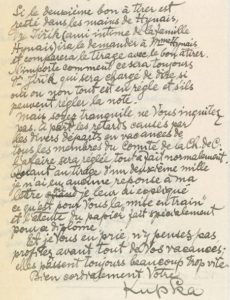 Si le deuxième bon à tirer est
resté dans les mains de Hynais,
Mr Jiřík (ami intime de la famille
Hynais) ira le demander à Mme Hynais
et comparera le tirage avec le bon à tirer.
N'importe comment ce sera toujours
Mr Jiřík qui sera chargé de dire si
oui ou non tout est en règle et s'ils
peuvent régler la note.
Mais soyez tranquille ne Vous inquiétez
pas, à part les retards causés par
les divers départs en vacances de
tous les membres du Comité de la Ch. de C.
l'affaire sera réglée tout à fait normalement.
Quant au tirage d'un deuxième mille
je n'ai eu aucune réponse à ma
lettre où j'ai expliqué
ce qu'est pour Vous la mise en train
et l'achat du papier fait spécialement
pour ce diplôme.
Et je Vous en prie, n'y pensez pas
profitez avant tout de Vos vacances,
elles passent toujours beaucoup trop vite.
Bien cordialement Votre
Kupka